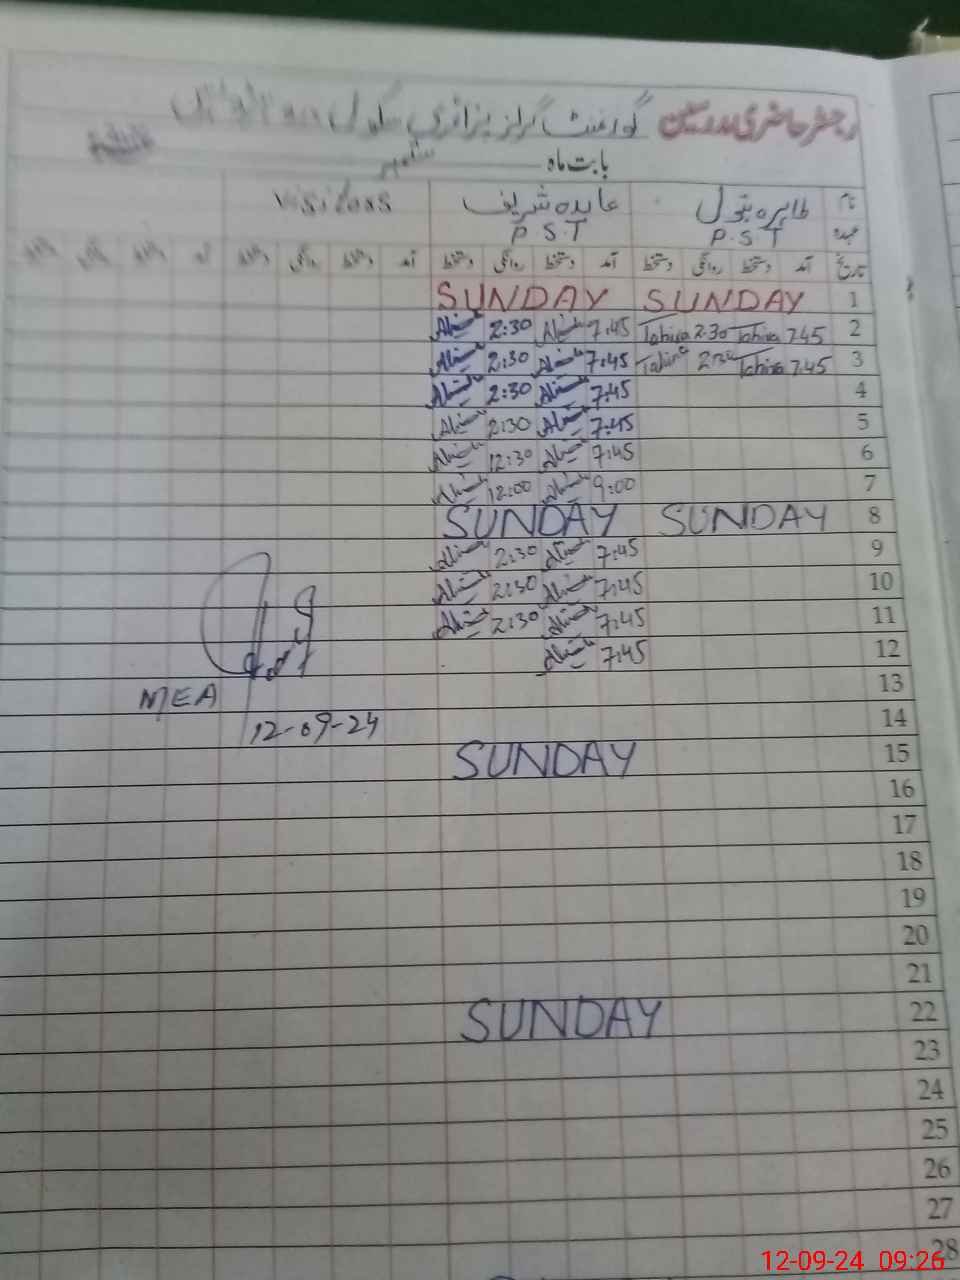 رجسٹر حاضری مدرسین گورنمنٹ گرلز پرائمری سکول
بابت ماہ ستمبر
نام طاہرہ بتول عابدہ شریف Visitors
عہدہ P.S.T P.S.T
تاریخ آمد دستخط روانگی دستخط آمد دستخط روانگی دستخط آمد دستخط روانگی دستخط
1 SUNDAY SUNDAY
2 7.45 Tahira 2.30 Tahira 7.45 2:30
3 7.45 Tahira Tahira 7:45 2:30
4 7:45 2:30
5 7:45 2:30
6 7:45 12:30
7 9:00 12:00
8 SUNDAY SUNDAY
9 7:45 2:30
10 7:45 2:30
11 7:45 2:30
12 7:45
13
MEA
14
12-09-24
15 SUNDAY
16
17
18
19
20
21
22 SUNDAY
23
24
25
26
27
28
12-09-24 09:26